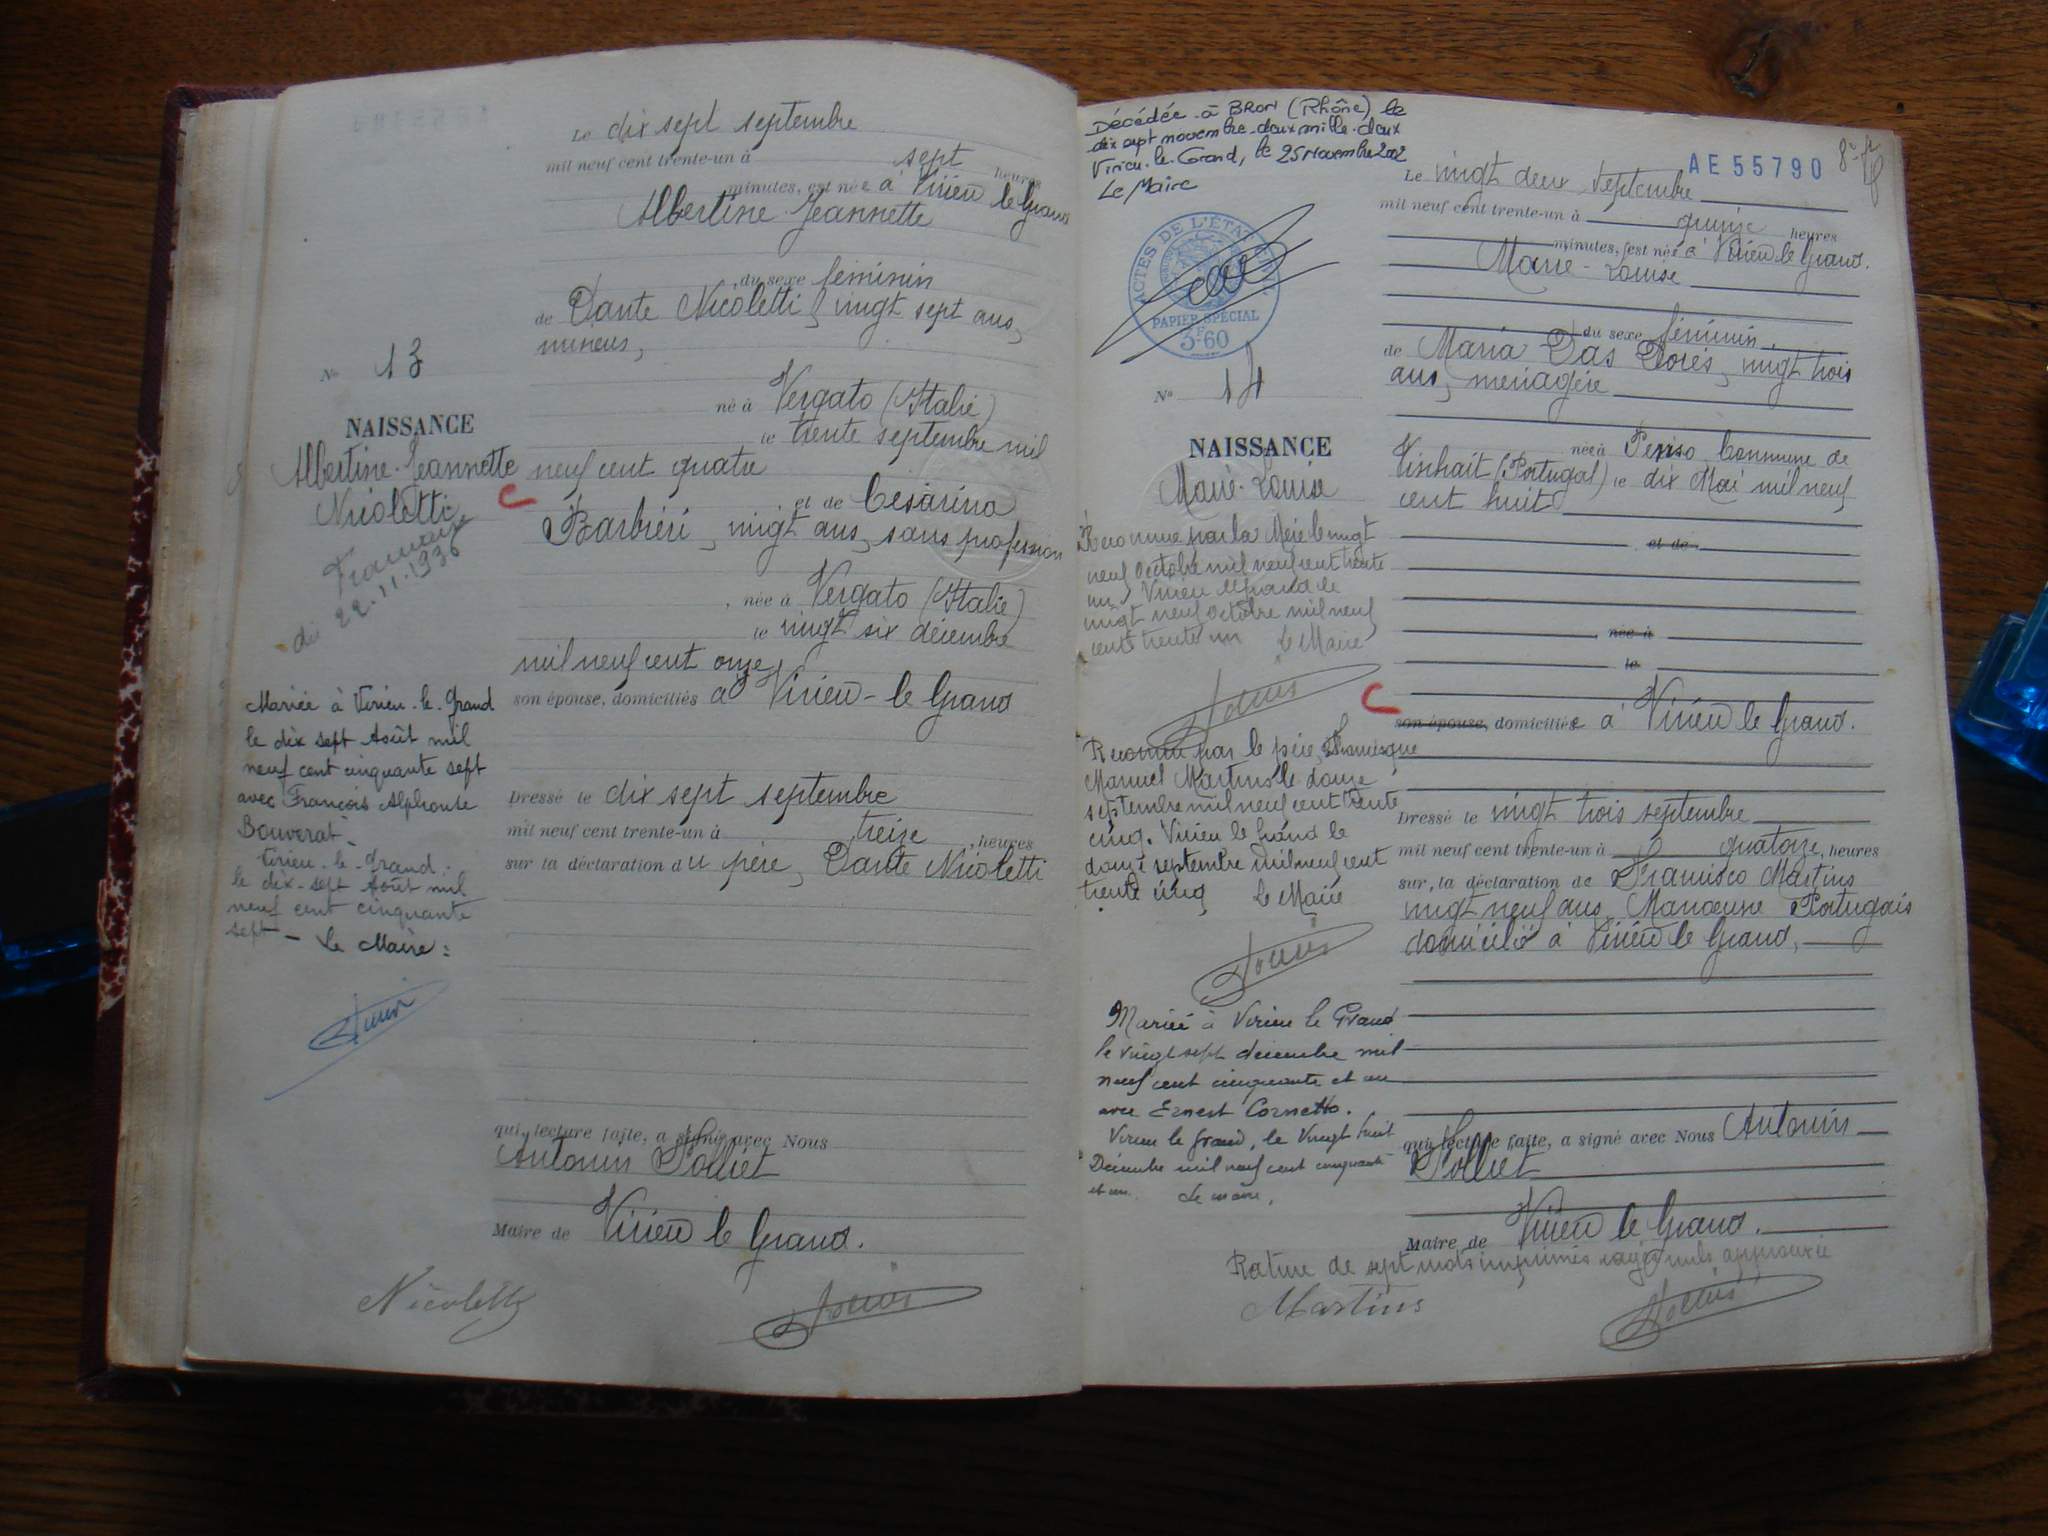 Le dix sept septembre
mil neuf cent trente-un à sept heures
minutes, est née à Virieu le Grand
Albertine Jeannette
, du sexe féminin
de Dante Nicoletti, vingt sept ans,
mineur,
né à Vergato (Italie)
le trente septembre mil
neuf cent quatre
et de Césarina
Barbiéri, vingt ans, sans profession
, née à Vergato (Italie)
le vingt six décembre
mil neuf cent onze,
son épouse, domiciliés à Virieu-le Grand
Dressé le dix sept septembre
mil neuf cent trente-un à treize , heures
sur la déclaration du père, Dante Nicoletti
qui, lecture faite, a signé avec Nous
Antonin
Maire de Virieu le Grand.
Nicoletti
No 13
NAISSANCE
Albertine-Jeannette
Nicoletti
Française
22.11.1936
Mariée à Virieu-le-Grand
le dix sept Août mil
neuf cent cinquante sept
avec François Alphonse
Bouverat-
Virieu-le-Grand.
le dix-sept Août mil
neuf cent cinquante
sept - Le Maire :
Décédée à BRON (Rhône) le
dix sept novembre deux mille deux
Virieu-le-Grand, le 25 Novembre 2002
Le Maire
ACTES DE L'ÉTAT
PAPIER SPÉCIAL
3F60
No 14
NAISSANCE
Marie-Louise
Reconnue par la Mère le vingt
neuf octobre mil neuf cent trente
un Virieu le Grand le
vingt neuf octobre mil neuf
cent trente un Le Maire
Reconnue par le père
Manuel Martins le douze
septembre mil neuf cent trente
cinq. Virieu le Grand le
douze septembre mil neuf cent
trente cinq Le Maire
Mariée à Virieu le Grand
le vingt sept décembre mil
neuf cent cinquante et un
avec Ernest Cornetto.
Virieu le Grand, le Vingt huit
Décembre mil neuf cent cinquante
et un. Le maire,
AE 55790
Le vingt deux septembre
mil neuf cent trente-un à quinze heures
minutes, est née à Virieu le Grand.
Marie-Louise
du sexe féminin
de Maria Das Dorès, vingt trois
ans, ménagère
née à Commune de
(Portugal) le dix Mai mil neuf
cent huit
et de
, née à
le
son épouse, domiciliée à Virieu le Grand.
Dressé le vingt trois septembre
mil neuf cent trente-un à quatorze, heures
sur la déclaration de Francisco Martins
vingt neuf ans, Manœuvre Portugais
domicilié à Virieu le Grand,
qui, lecture faite, a signé avec Nous Antonin
Maire de Virieu le Grand.
Rature de sept mots imprimés rayés nuls, approuvée
Martins